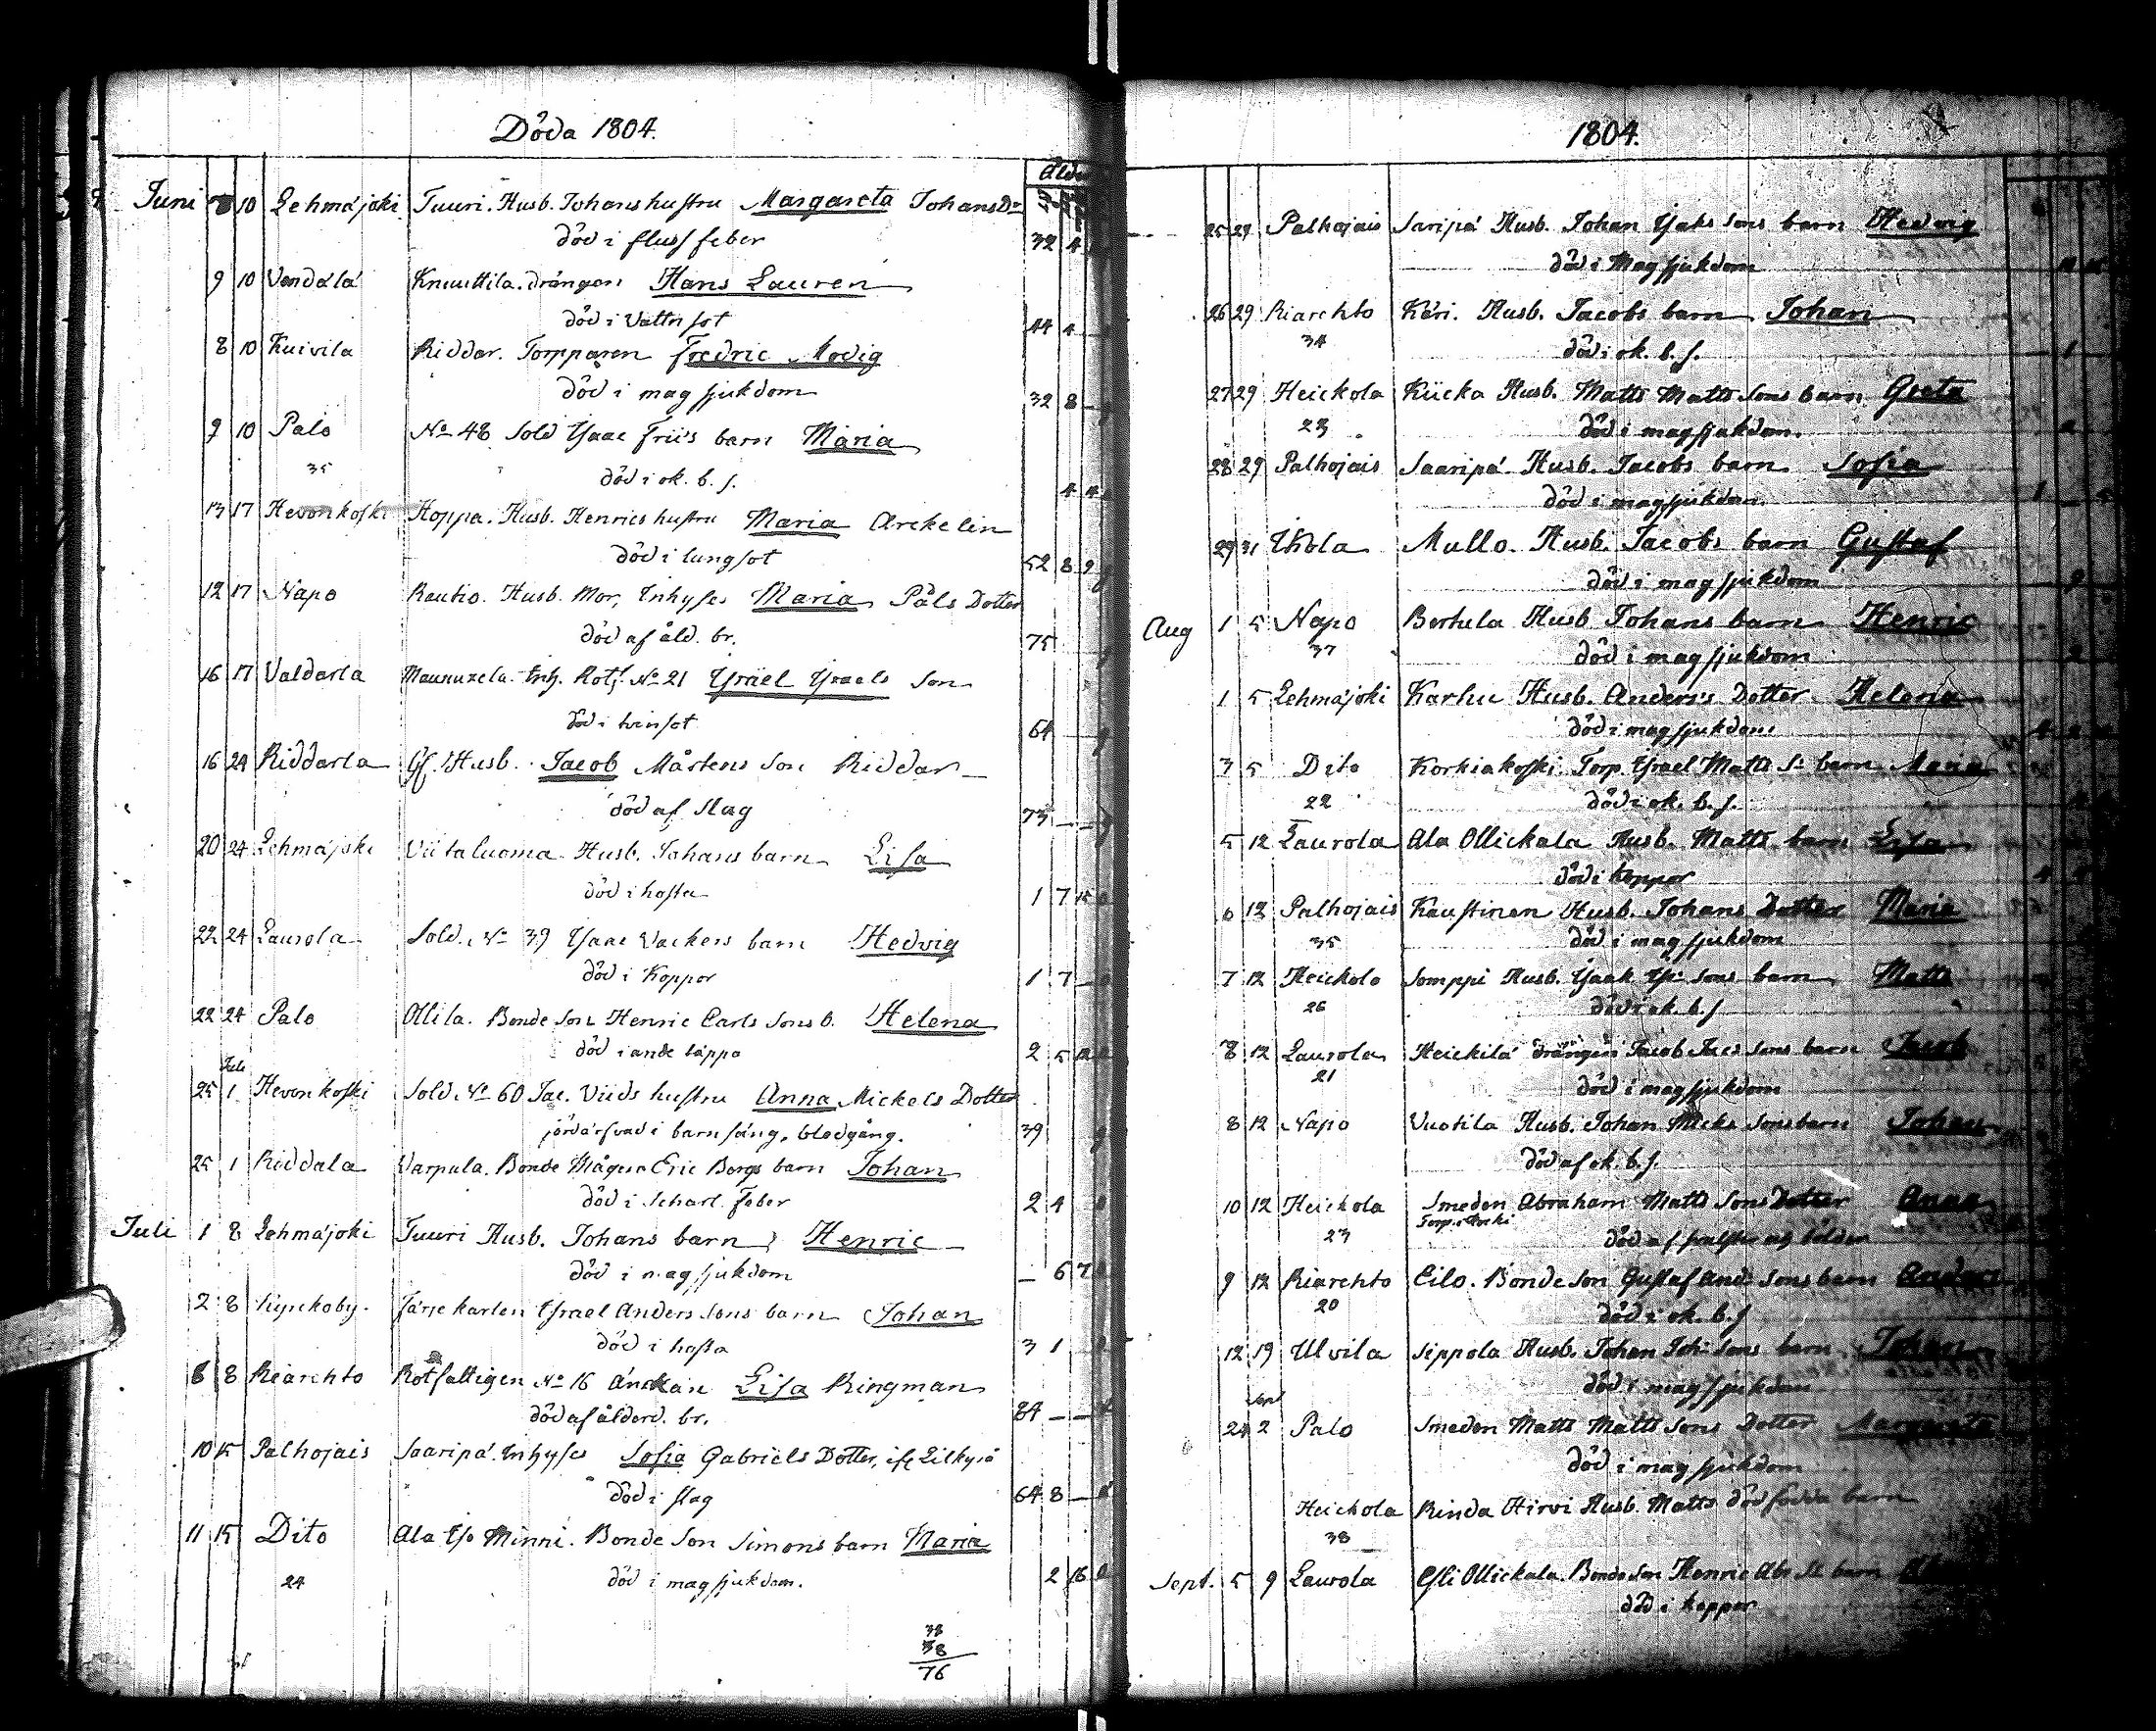 Döda 1804.
Ålder
Juni 10 Lehmäjoki Tuuri. Husb. Johans hustru Margareta Johans Dr
död i fluss feber 32 4
9 10 Vendälä Knuuttila. drängen Hans Lauren
död i Vattn sot 44 4
8 10 Kuivila Riddar. Torpparen Fredric Modig
död i mag sjukdom 32 8
9 10 Palo No 48 Sold Isaac Friis barn Maria
35 död i ok. b. s. 4 4
13 17 Hevonkoski Hoppa. Husb. Henrics hustru Maria Arckelin
död i lungsot 52 8 9
12 17 Napo Rautio. Husb. Mor, Inhyses Maria Påls Dotter
död af åld. br. 75
16 17 Valdarla Maunuxela. Inh. Rotf. No 21 Israel Israels Son
död i tvinsot 64
16 24 Riddarla Gf. Husb. Jacob Mårtens Son Riddar
död af slag 73
20 24 Lehmäjoki Viitaluoma Husb. Johans barn Lisa
död i hosta 1 7 15
22 24 Laurola Sold. No 39 Isaac Vackers barn Hedvig
död i Koppor 1 7
22 24 Palo Ollila. Bonde Son Henric Carls Sons b. Helena
död i ande täppa 2 5 12
Juli
25 1 Hevonkoski Sold. No 60 Jac. Viids hustru Anna Mickels Dotter
barnsäng, blodgång. 39
25 1 Riddala Varpula. Bonde Mågen Eric Borgs barn Johan
död i Scharl. Feber 2 4
Juli 1 8 Lehmäjoki Tuuri Husb. Johans barn Henric
död i magsjukdom 6 7
2 8 Kyrckoby. Färje karlen Israel Anders Sons barn Johan
död i hosta 3 1
8 8 Kiarehto Rotfattigen No 16 Änckan Lisa Ringman
död af ålderd. br. 84
10 15 Palhojais Saaripä. Inhyses Sofia Gabriels Dotter,
död i slag 64 8
11 15 Dito Ala Iso Minni. Bonde Son Simons barn Maria
24 död i magsjukdom. 2 16
38
38
76
1804.
25 29 Palhojais Saripä Husb. Johan Isaks Sons barn Hedvig
död i Magsjukdom
26 29 Kiarehto Keri. Husb. Jacobs barn Johan
34 död i ok. b. s. 1
27 29 Heickola Kiicka Husb. Matts Matts Sons barn Greta
23 död i magsjukdom.
28 29 Palhojais Saaripä. Husb. Jacobs barn Sofia
död i magsjukdom 1
29 31 Ikola Mullo. Husb. Jacobs barn Gustaf
död i magsjukdom 9
Aug 1 5 Napo Bertula Husb Johans barn Henric
37 död i magsjukdom
1 5 Lehmäjoki Karhu Husb. Anders's Dotter Helena
död i magsjukdom
3 5 Dito Korkiakoski Torp. Israel Matts S. barn Maria
22 död i ok. b. s.
5 12 Laurola Ala Ollickala Husb. Matts barn Lisa
död i Koppor
6 12 Palhojais Kaustinen Husb. Johans Dotter Maria
35 död i magsjukdom
7 12 Heickola Somppi Husb. Isaak Is. Sons barn Matts
26 död i ok. b. s
8 12 Laurola Heickilä drängen Jacob Jacs Sons barn Jacob
21 död i magsjukdom
8 12 Napo Vuotila Husb. Johan Micks Sons barn Johan
död af ok. b. s.
10 12 Heickola Smeden Abraham Matts Sons Dotter Anna
23 död af
9 12 Kiarehto Eilo. Bonde Son Gustaf And. Sons barn Anders
20 död i ok. b. s
12 19 Ulvila Sippola Husb. Johan Joh. Sons barn Johan
död i magsjukdom
Sept
24 2 Palo Smeden Matts Matts Sons Dotter Margareta
död i magsjukdom
Heickola Rinda Hirvi Husb. Matts dödfödda barn
38
Sept. 5 9 Laurola Ollickala. Bonde Son Henric Abr. S. barn
död i koppor